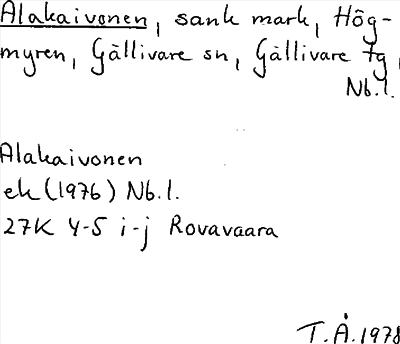 Alakaivonen, sank mark, Hög-
myren, Gällivare sn, Gällivare tg,
Nb.l.
Alakaivonen
ek (1976) Nb.l.
27K 4-5 i-j Rovavaara
T.Å. 1978